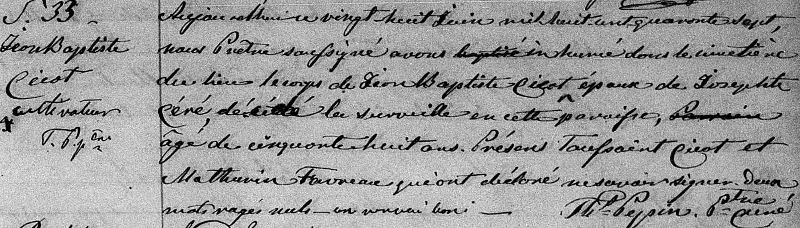 S. 33
Jean Baptiste
Cicot
cultivateur
T. P. ptre
Aujourd'hui ce vingt huit Juin mil huit cent quarante sept,
nous Prêtre soussigné avons baptisé inhumé dans le cimetière
du lieu le corps de Jean Baptiste Cicot époux de Josephte
Céré décédé la surveille en cette paroisse, Parrain
âgé de cinquante huit ans. Présens Toussaint Cicot et
Mathurin Favreau qui ont déclaré ne savoir signer. Deux
mots rayés nuls un renvoi bon
Ths. Pepin. Ptre Curé